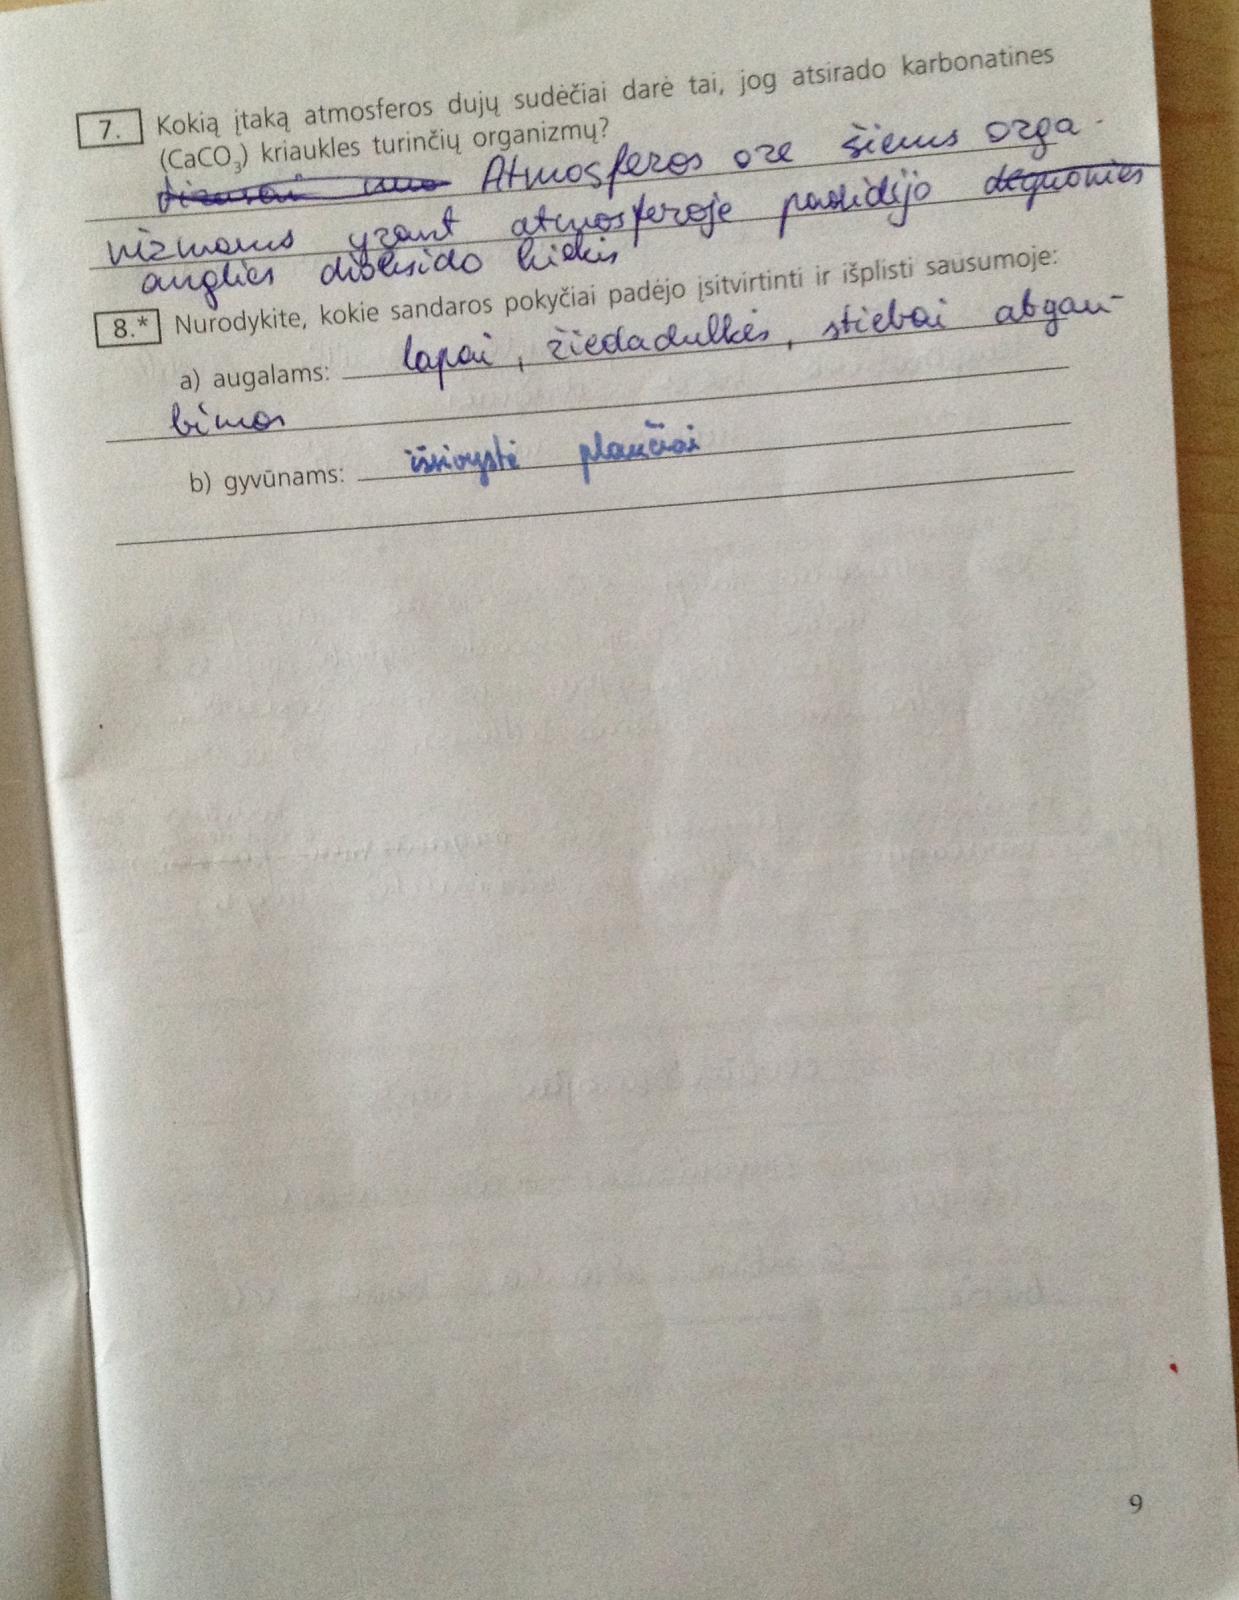 7. Kokią įtaką atmosferos dujų sudėčiai darė tai, jog atsirado karbonatines
(CaCO₃) kriaukles turinčių organizmų?
Atmosferos ore šiems orga-
nizmams yrant atmosferoje padidėjo deguonies
anglies dioksido kiekis
8.* Nurodykite, kokie sandaros pokyčiai padėjo įsitvirtinti ir išplisti sausumoje:
a) augalams: lapai, žiedadulkės, stiebai
b) gyvūnams: išsivystė plaučiai
9